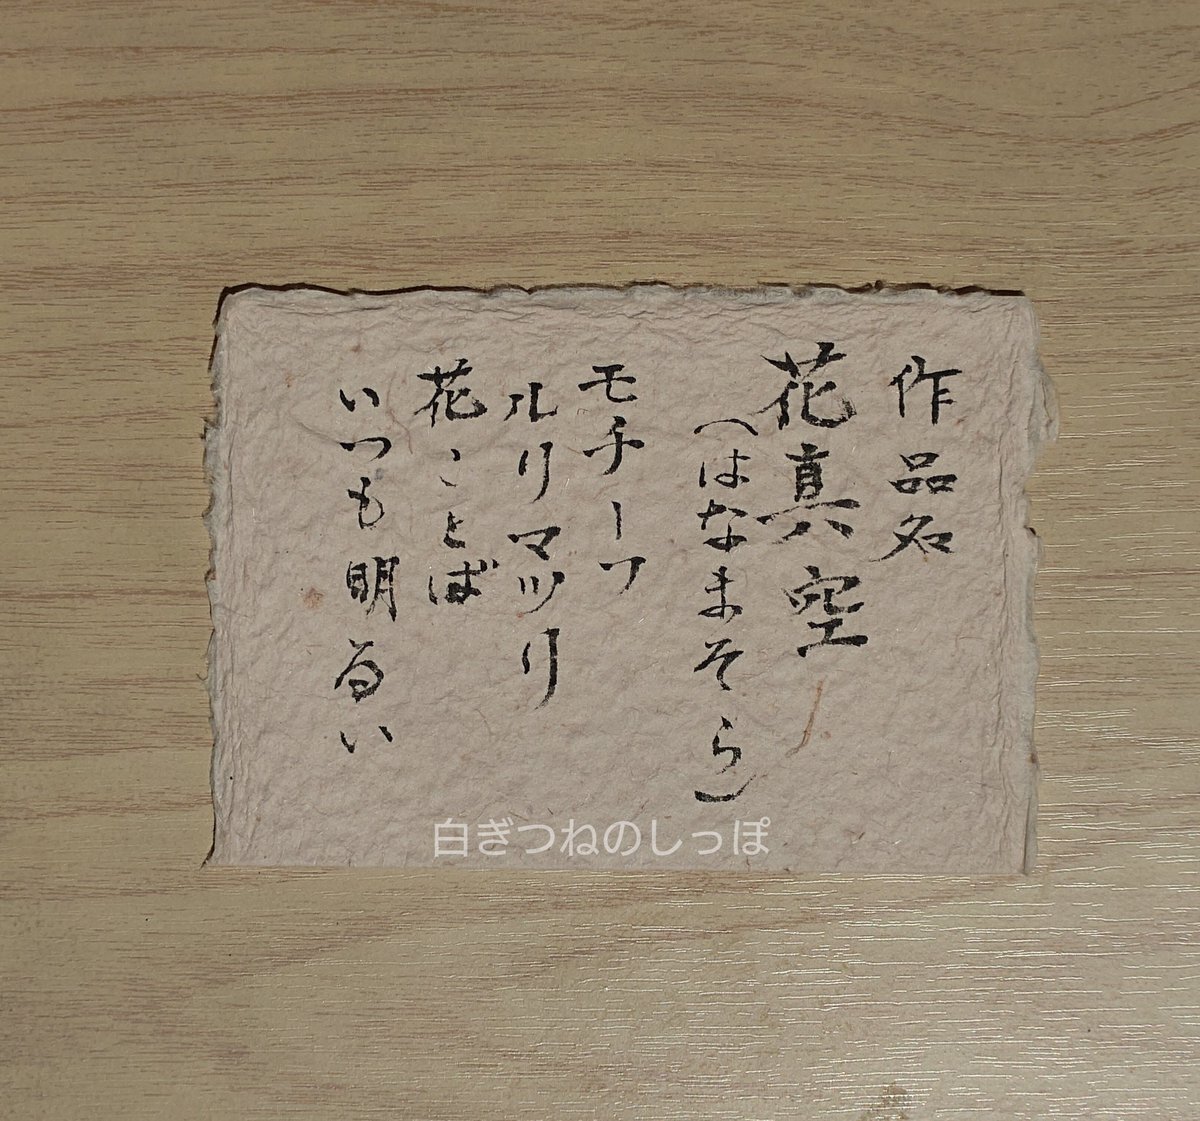 作品名
花真空
（はなまそら）
モチーフ
ルリマツリ
花ことば
いつも明るい
白ぎつねのしっぽ